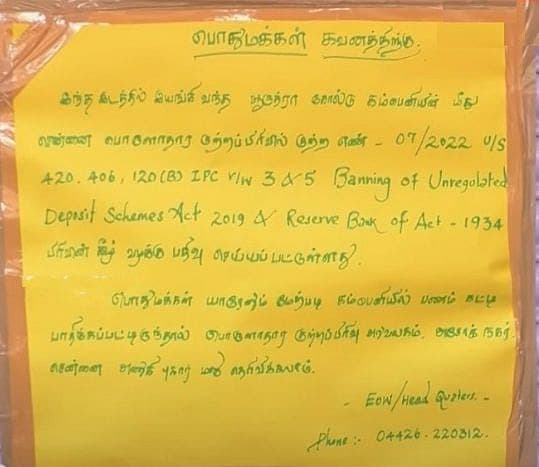 பொதுமக்கள் கவனத்திற்கு.
இந்த இடத்தில் இயங்கி வந்த ஆருத்ரா கோல்டு கம்பெனியின் மீது
சென்னை பொருளாதார குற்றப்பிரிவில் குற்ற எண் - 07/2022 U/S
420, 406, 120(B) IPC r/w 3 & 5 Banning of Unregulated
Deposit Schemes Act 2019 & Reserve Bank of Act - 1934
பிரிவின் கீழ் வழக்கு பதிவு செய்யப்பட்டுள்ளது.
பொதுமக்கள் யாரேனும் மேற்படி கம்பெனியில் பணம் கட்டி
பாதிக்கப்பட்டிருந்தால் பொருளாதார குற்றப்பிரிவு அலுவலகம், அசோக் நகர்.
சென்னை அணுகி புகார் மனு தெரிவிக்கலாம்.
- EOW/Head Quaters. -
Phone :- 04426.220312.